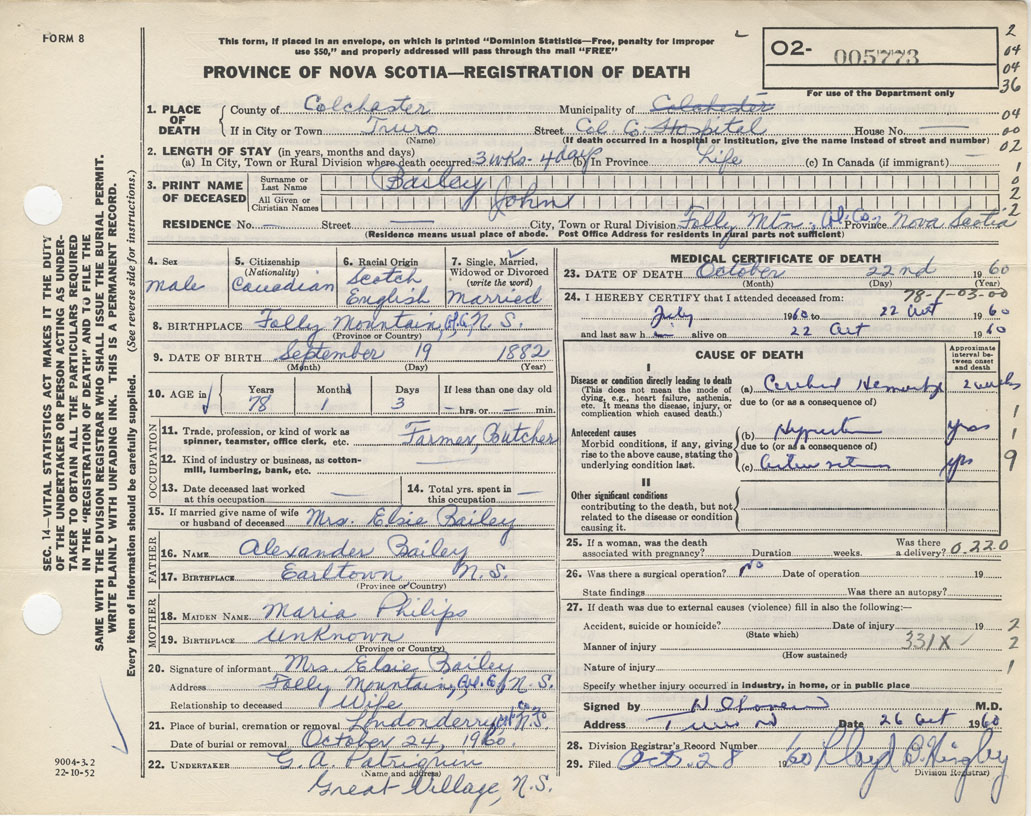 FORM 8
This form, if placed in an envelope, on which is printed "Dominion Statistics—Free, penalty for improper
use $50," and properly addressed will pass through the mail "FREE"
PROVINCE OF NOVA SCOTIA—REGISTRATION OF DEATH
02- 005773
For use of the Department only
2
04
04
36
04
00
02
1
0
2
2
1. PLACE OF DEATH County of Colchester Municipality of Colchester
If in City or Town Truro Street Col. Co. Hospital House No.
(Name) (If death occurred in a hospital or Institution, give the name instead of street and number)
2. LENGTH OF STAY (in years, months and days)
(a) In City, Town or Rural Division where death occurred 3 wks - 4 days In Province Life (c) In Canada (if immigrant)
3. PRINT NAME OF DECEASED Surname or Last Name Bailey
All Given or Christian Names John
RESIDENCE No. — Street — City, Town or Rural Division Folly Mtn., Col. Co. Province Nova Scotia
(Residence means usual place of abode. Post Office Address for residents in rural parts not sufficient)
4. Sex male
5. Citizenship (Nationality) Canadian
6. Racial Origin Scotch English
7. Single, Married, Widowed or Divorced (write the word) Married
8. BIRTHPLACE Folly Mountain, Col. Co. N. S.
(Province or Country)
9. DATE OF BIRTH September 19 1882
(Month) (Day) (Year)
10. AGE in Years Months Days If less than one day old
78 1 3 — hrs. or — min.
OCCUPATION
11. Trade, profession, or kind of work as spinner, teamster, office clerk, etc. Farmer, Butcher
12. Kind of industry or business, as cotton-mill, lumbering, bank, etc. —
13. Date deceased last worked at this occupation —
14. Total yrs. spent in this occupation —
15. If married give name of wife or husband of deceased Mrs. Elsie Bailey
FATHER
16. NAME Alexander Bailey
17. BIRTHPLACE Earltown N. S.
(Province or Country)
MOTHER
18. MAIDEN NAME Maria Philips
19. BIRTHPLACE unknown
(Province or Country)
20. Signature of informant Mrs. Elsie Bailey
Address Folly Mountain, Col. Co. N. S.
Relationship to deceased Wife
21. Place of burial, cremation or removal Londonderry Col. Co. N.S.
Date of burial or removal October 24, 1960.
22. UNDERTAKER G. A. Patriquin
(Name and address)
Great Village, N.S.
MEDICAL CERTIFICATE OF DEATH
23. DATE OF DEATH October 22nd 1960
(Month) (Day) (Year)
78-1-03-00
24. I HEREBY CERTIFY that I attended deceased from:
July 1960 to 22 Oct 1960
and last saw h alive on 22 Oct 1960
CAUSE OF DEATH
Approximate interval between onset and death
I
Disease or condition directly leading to death
(This does not mean the mode of dying, e.g., heart failure, asthenia, etc. It means the disease, injury, or complication which caused death.)
(a) Cerebral Hemorrhage 2 weeks
due to (or as a consequence of)
Antecedent causes
Morbid conditions, if any, giving rise to the above cause, stating the underlying condition last.
(b) Hypertension yrs
due to (or as a consequence of)
(c) yrs
II
Other significant conditions
contributing to the death, but not related to the disease or condition causing it.
1
1
9
25. If a woman, was the death associated with pregnancy? Duration weeks. Was there a delivery? 0.220
26. Was there a surgical operation? No Date of operation 19
State findings Was there an autopsy?
27. If death was due to external causes (violence) fill in also the following:—
Accident, suicide or homicide? Date of injury 19
(State which)
Manner of injury 331X
(How sustained)
Nature of injury
2
2
1
Specify whether injury occurred in industry, in home, or in public place
Signed by M.D.
Address Truro NS Date 26 Oct 1960
28. Division Registrar's Record Number
29. Filed Oct. 28 1960 Lloyd
Division Registrar)
SEC. 14—VITAL STATISTICS ACT MAKES IT THE DUTY
OF THE UNDERTAKER OR PERSON ACTING AS UNDER-
TAKER TO OBTAIN ALL THE PARTICULARS REQUIRED
IN THE "REGISTRATION OF DEATH" AND TO FILE THE
SAME WITH THE DIVISION REGISTRAR WHO SHALL ISSUE THE BURIAL PERMIT.
WRITE PLAINLY WITH UNFADING INK. THIS IS A PERMANENT RECORD.
Every item of information should be carefully supplied. (See reverse side for instructions.)
9004-3.2
22-10-52